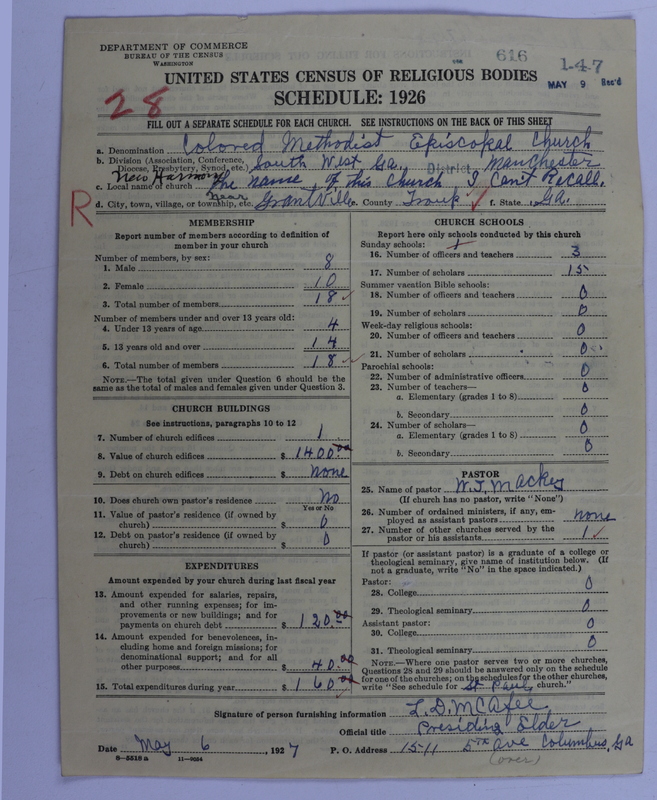 DEPARTMENT OF COMMERCE
BUREAU OF THE CENSUS
WASHINGTON
616
1-47
MAY 9 Rec'd
UNITED STATES CENSUS OF RELIGIOUS BODIES
SCHEDULE: 1926
28
FILL OUT A SEPARATE SCHEDULE FOR EACH CHURCH. SEE INSTRUCTIONS ON THE BACK OF THIS SHEET
a. Denomination Colored Methodist Episcopal Church
b. Division (Association, Conference, Diocese, Presbytery, Synod, etc.) South West Ga. District Manchester
New Harmony
c. Local name of church The name of this Church I Can't Recall.
R
near
d. City, town, village, or township, etc. Grantville e. County Troup f. State Ga.
MEMBERSHIP
Report number of members according to definition of
member in your church
Number of members, by sex:
1. Male 8
2. Female 10
3. Total number of members 18
Number of members under and over 13 years old:
4. Under 13 years of age 4
5. 13 years old and over 14
6. Total number of members 18
NOTE.—The total given under Question 6 should be the
same as the total of males and females given under Question 3.
CHURCH BUILDINGS
See instructions, paragraphs 10 to 12
7. Number of church edifices 1
8. Value of church edifices $ 1400.00
9. Debt on church edifices $ none
10. Does church own pastor's residence No
Yes or No
11. Value of pastor's residence (if owned by
church) $ 0
12. Debt on pastor's residence (if owned by
church) $ 0
EXPENDITURES
Amount expended by your church during last fiscal year
13. Amount expended for salaries, repairs,
and other running expenses; for im-
provements or new buildings; and for
payments on church debt $ 120.00
14. Amount expended for benevolences, in-
cluding home and foreign missions; for
denominational support; and for all
other purposes 40.00
15. Total expenditures during year $ 160.00
CHURCH SCHOOLS
Report here only schools conducted by this church
Sunday schools: 1
16. Number of officers and teachers 3
17. Number of scholars 15
Summer vacation Bible schools:
18. Number of officers and teachers 0
19. Number of scholars 0
Week-day religious schools:
20. Number of officers and teachers 0
21. Number of scholars 0
Parochial schools:
22. Number of administrative officers 0
23. Number of teachers—
a. Elementary (grades 1 to 8) 0
b. Secondary 0
24. Number of scholars—
a. Elementary (grades 1 to 8) 0
b. Secondary 0
PASTOR
25. Name of pastor W.J. Mackey
(If church has no pastor, write "None")
26. Number of ordained ministers, if any, em-
ployed as assistant pastors none
27. Number of other churches served by the
pastor or his assistants 1
If pastor (or assistant pastor) is a graduate of a college or
theological seminary, give name of institution below. (If
not a graduate, write "No" in the space indicated.)
Pastor:
28. College 0
29. Theological seminary 0
Assistant pastor:
30. College 0
31. Theological seminary 0
NOTE.—Where one pastor serves two or more churches,
Questions 28 and 29 should be answered only on the schedule
for one of the churches; on the schedules for the other churches,
write "See schedule for St Paul church."
Signature of person furnishing information L. D. McAfee
Official title Presiding Elder
Date May 6, 1927 P. O. Address 1511 5th ave Columbus, Ga
8—5518 a 11—9034
(over)